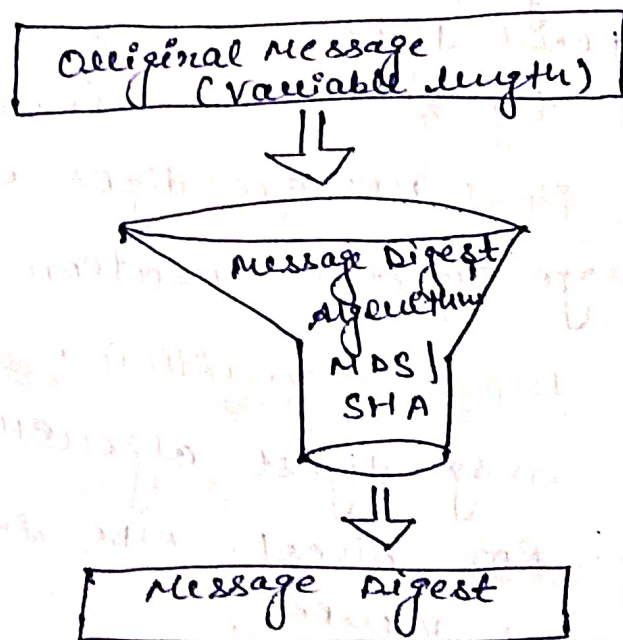 Original Message
(Variable length)
Message Digest
Algorithm
MD5/
SHA
Message Digest